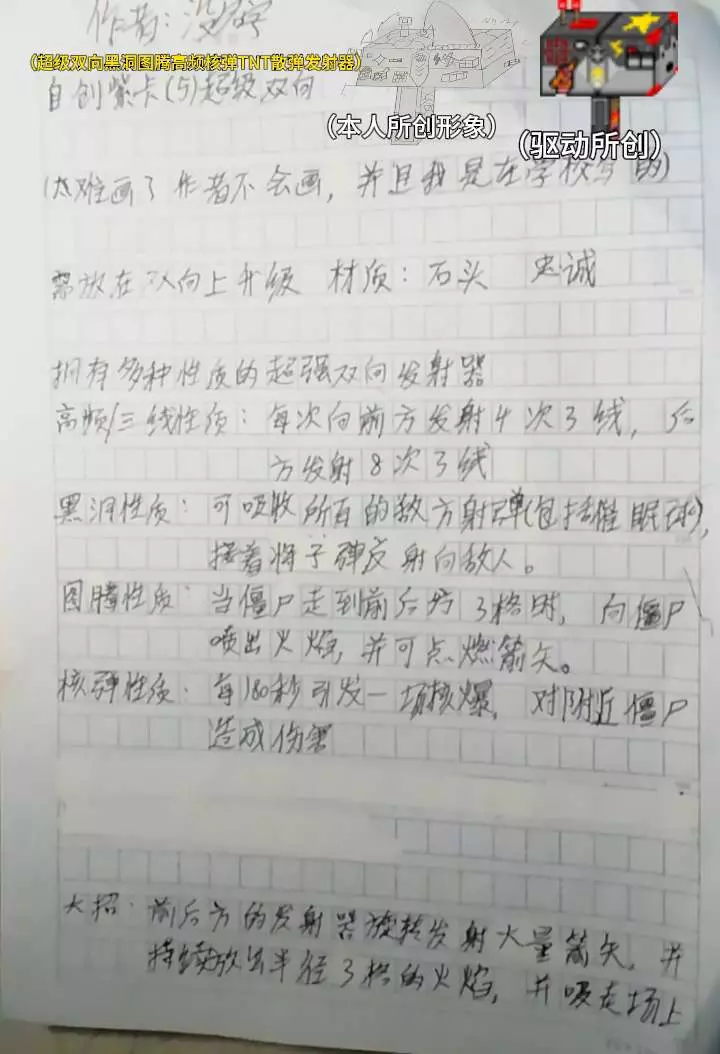 作者:没
(超级双向黑洞图腾高频核弹TNT散弹发射器)
自创紫卡(5)超级双向
(本人所创形象)
(驱动所创)
(太难画了作者不会画,并且我是在学校写的)
需放在双向上升级 材质:石头 忠诚
拥有多种性质的超强双向发射器
高频/三线性质:每次向前方发射4次3线,后
方发射8次3线
黑洞性质:可吸收所有的敌方射弹(包括催眠球),
接着将子弹反射向敌人。
图腾性质:当僵尸走到前后方3格时,向僵尸
喷出火焰,并可点燃箭矢。
核弹性质:每180秒引发一场核爆,对附近僵尸
造成伤害
大招:前后方的发射器旋转发射大量箭矢,并
持续放出半径3格的火焰,并吸走场上